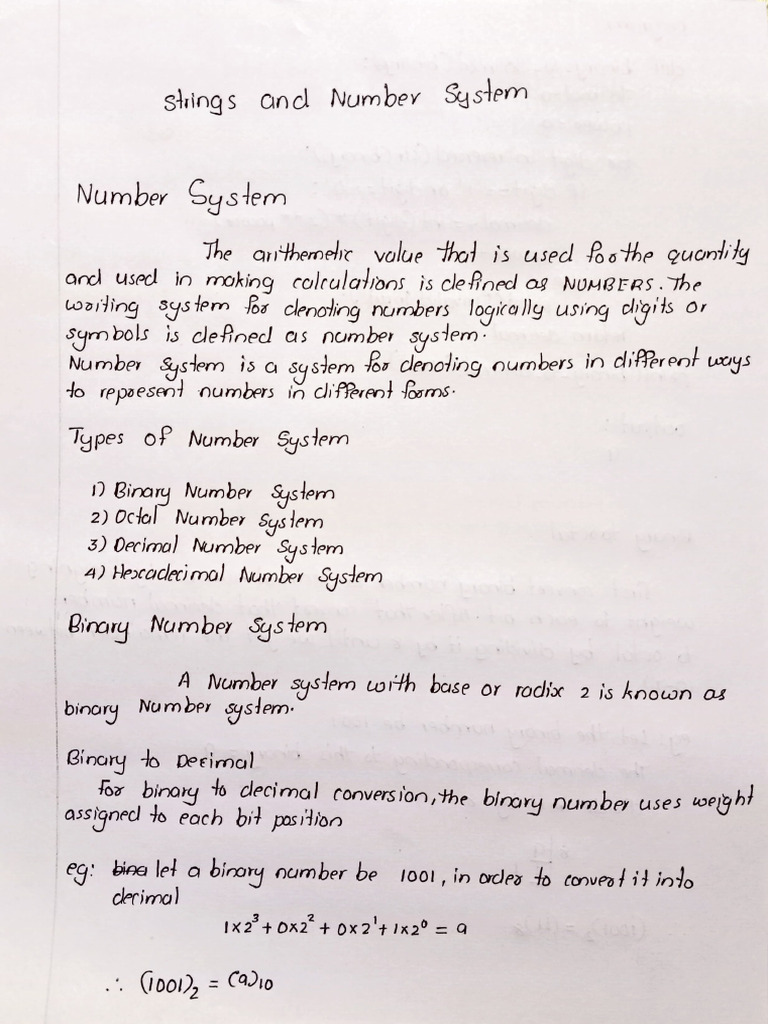 Strings and Number System
Number System
The arithemetic value that is used for the quantity
and used in making calculations is defined as NUMBERS. The
writing system for denoting numbers logically using digits or
symbols is defined as number system.
Number System is a system for denoting numbers in different ways
to represent numbers in different forms.
Types of Number System
1) Binary Number System
2) Octal Number System
3) Decimal Number System
4) Hexadecimal Number System
Binary Number System
A Number system with base or radix 2 is known as
binary Number system.
Binary to Decimal
For binary to decimal conversion, the binary number uses weight
assigned to each bit position
eg: let a binary number be 1001, in order to convert it into
decimal
1×2³ + 0×2² + 0×2¹ + 1×2⁰ = 9
∴ (1001)₂ = (9)₁₀